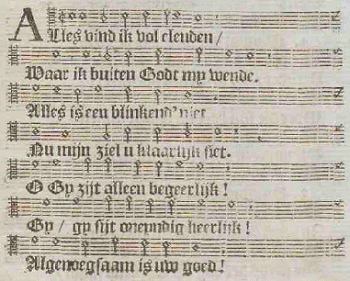 ALles vind ik vol elenden /
Waar ik buiten Godt my wende.
Alles is een blinkend' niet
Nu mijn ziel u klaarlijk siet.
O Gy zijt alleen begeerlijk !
Gy / gy sijt oneyndig heerlijk !
Algenoegsaam is uw goed !